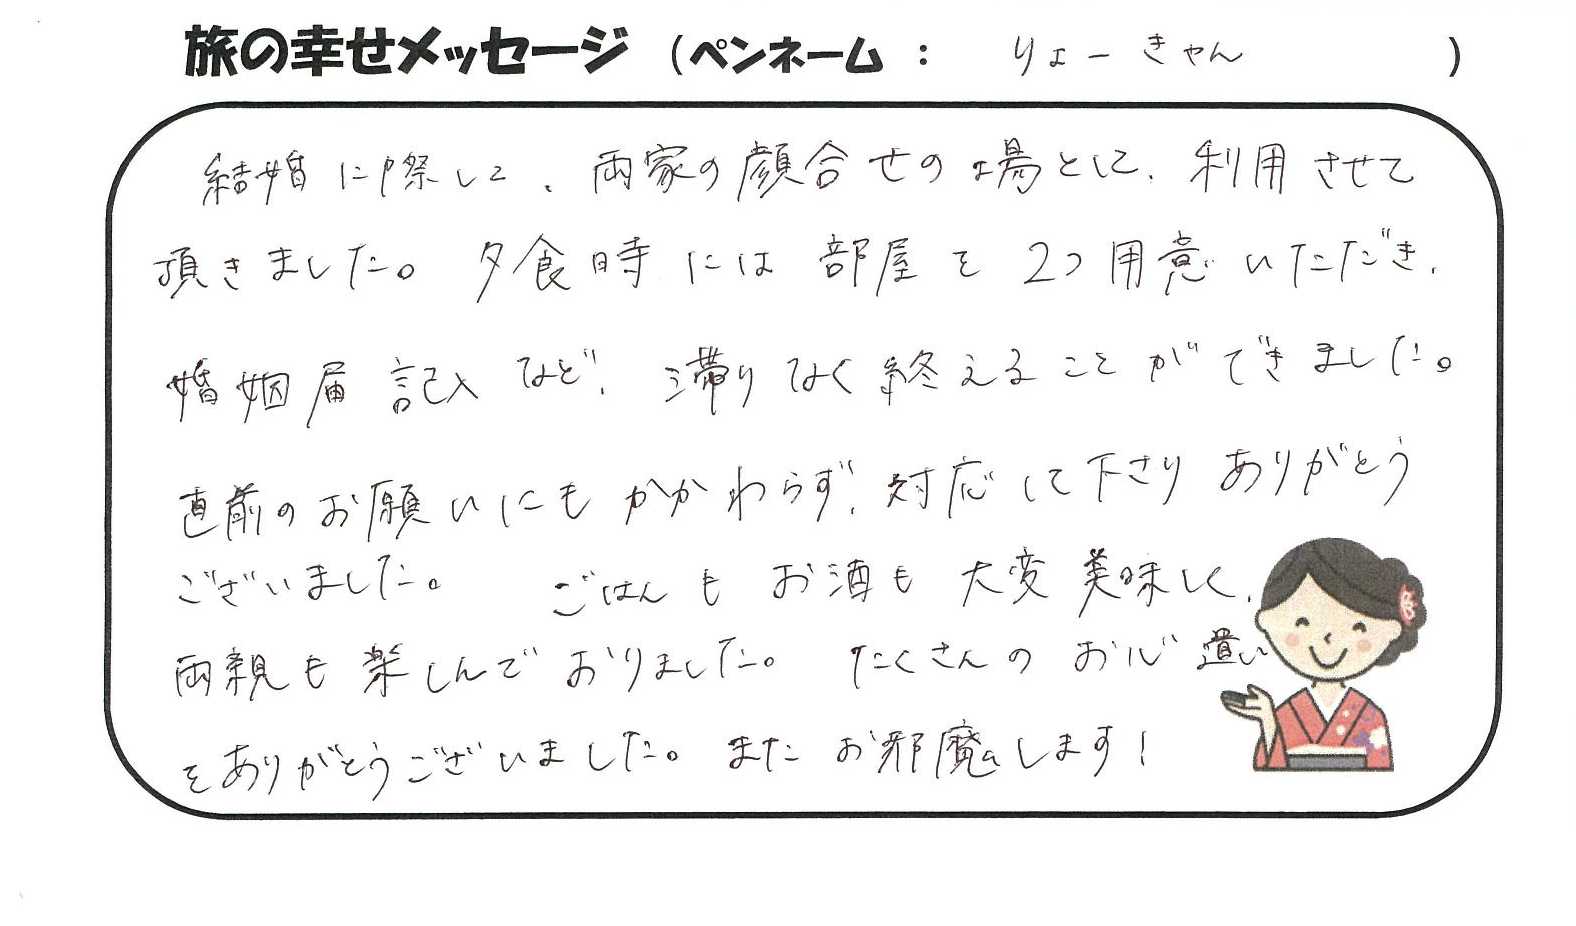 旅の幸せメッセージ （ペンネーム ： りょーきゃん ）
結婚に際して、両家の顔合せの場として、利用させて
頂きました。夕食時には部屋を2つ用意いただき、
婚姻届記入など、滞りなく終えることができました。
直前のお願いにもかかわらず、対応して下さりありがとう
ございました。 ごはんもお酒も大変美味しく、
両親も楽しんでおりました。 たくさんのお心遣い
をありがとうございました。またお邪魔します！